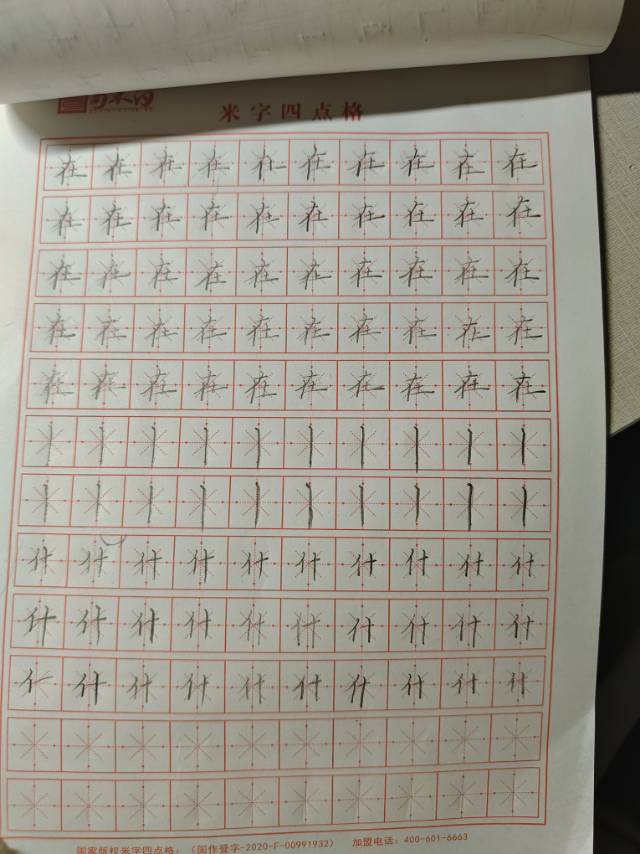 米字四点格
在在在在在在在在在在
在在在在在在在在在在
在在在在在在在在在在
在在在在在在在在在在
在在在在在在在在在在
丨丨丨丨丨丨丨丨丨丨
丨丨丨丨丨丨丨丨丨丨
什什什什什什什什什什
什什什什什什什什什什
什什什什什什什什什什
国家版权米字四点格:(国作登字-2020-F-00991932) 加盟电话:400-601-6663